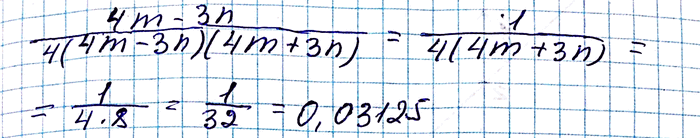 (4m - 3n) / (4(4m - 3n)(4m + 3n)) = 1 / (4(4m + 3n)) =
= 1 / (4 · 8) = 1 / 32 = 0,03125